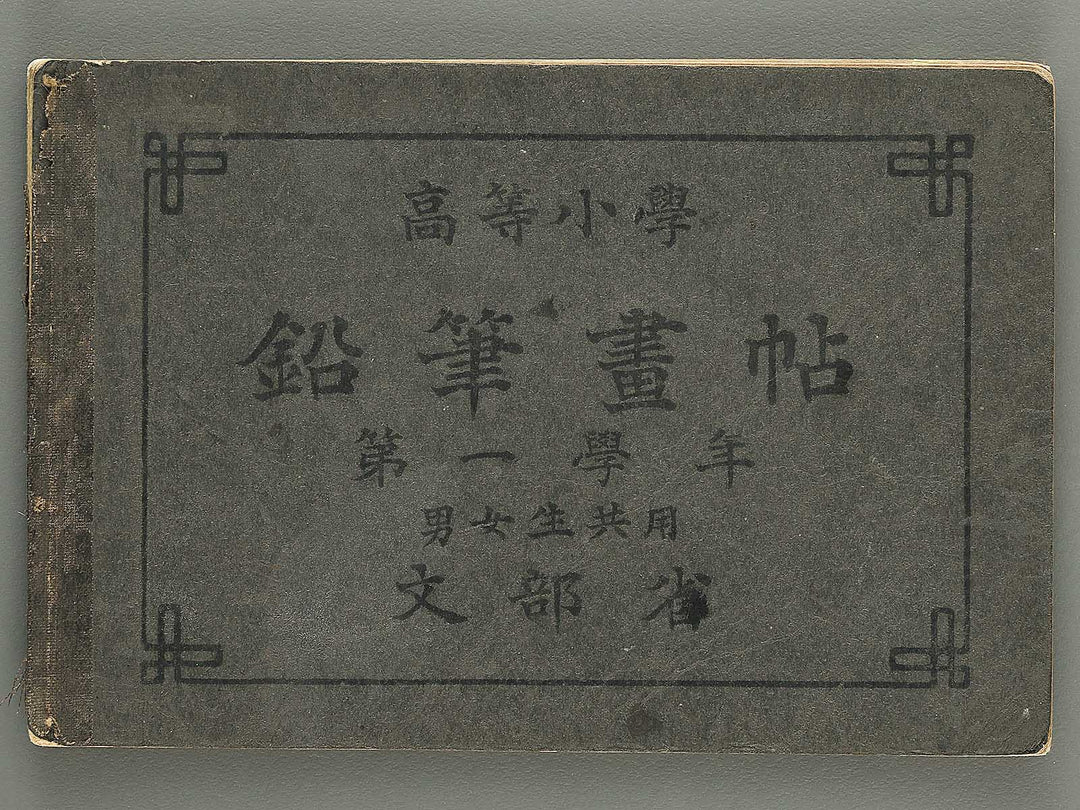 高等小學
鉛筆畫帖
第一學年
男女生共用
文部省